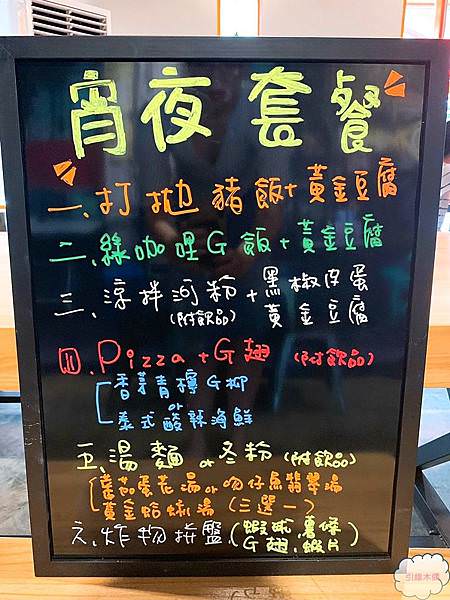 宵夜套餐
一、打拋豬飯+黃金豆腐
二、綠咖哩G飯+黃金豆腐
三、涼拌河粉(附飲品)+黑椒皮蛋
黃金豆腐
四、Pizza+G翅(附飲品)
香茅青檸G柳
or
泰式酸辣海鮮
五、湯麵or冬粉(附飲品)
蕃茄蛋花湯or吻仔魚翡翠湯
黃金蛤蜊湯(三選一)
六、炸物拼盤(蝦球、薯條
G翅、蝦片)
引線木偶